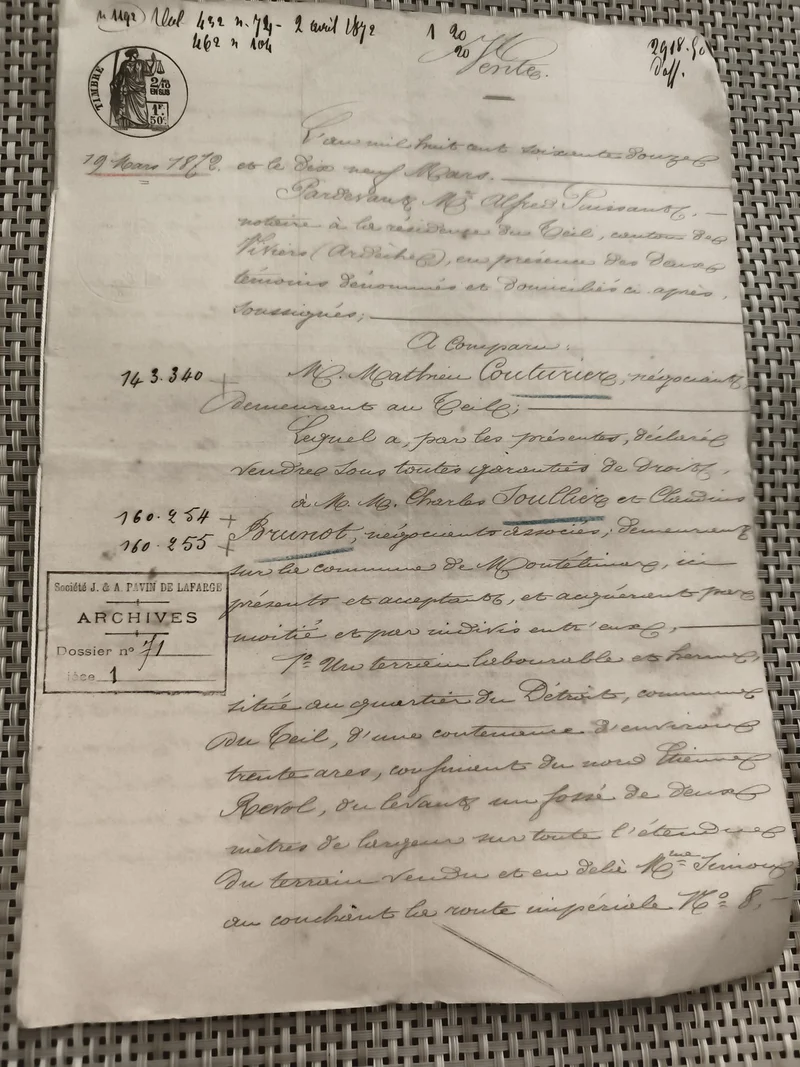 n 1192 Vol 432 n. 74 - 2 avril 1872
462 n 104
1 20
20
2918.50
Vente
TIMBRE
2/10
EN SUS
1F.
50c
19 Mars 1872.
L'an mil huit cent soixante douze
et le dix neuf Mars.
Pardevant Me Alfred Puissant,
notaire à la résidence du Teil, canton de
Viviers (Ardèche), en présence des deux
témoins dénommés et domiciliés ci après,
soussignés;
A Comparu:
143.340 +
M. Mathieu Couturier, négociant,
demeurant au Teil;
Lequel a, par les présentes, déclaré
vendre sous toutes garanties de droit,
à M. M. Charles Soullier et Claudius
160.254 +
160.255 +
Brunot, négociants associés, demeurant
sur la commune de Montélimar, ici
présents et acceptant, et acquérant par
moitié et par indivis entr'eux,
Société J. & A. PAVIN DE LAFARGE
ARCHIVES
Dossier no 71
ièce 1
1o Un terrain labourable et herme,
situé au quartier du Détroit, commune
du Teil, d'une contenance d'environ
trente ares, confinant du nord Etienne
Revol, du levant un fossé de deux
mètres de largeur sur toute l'étendue
du terrain vendu et en delà Mme Simon
au couchant la route impériale No 8,